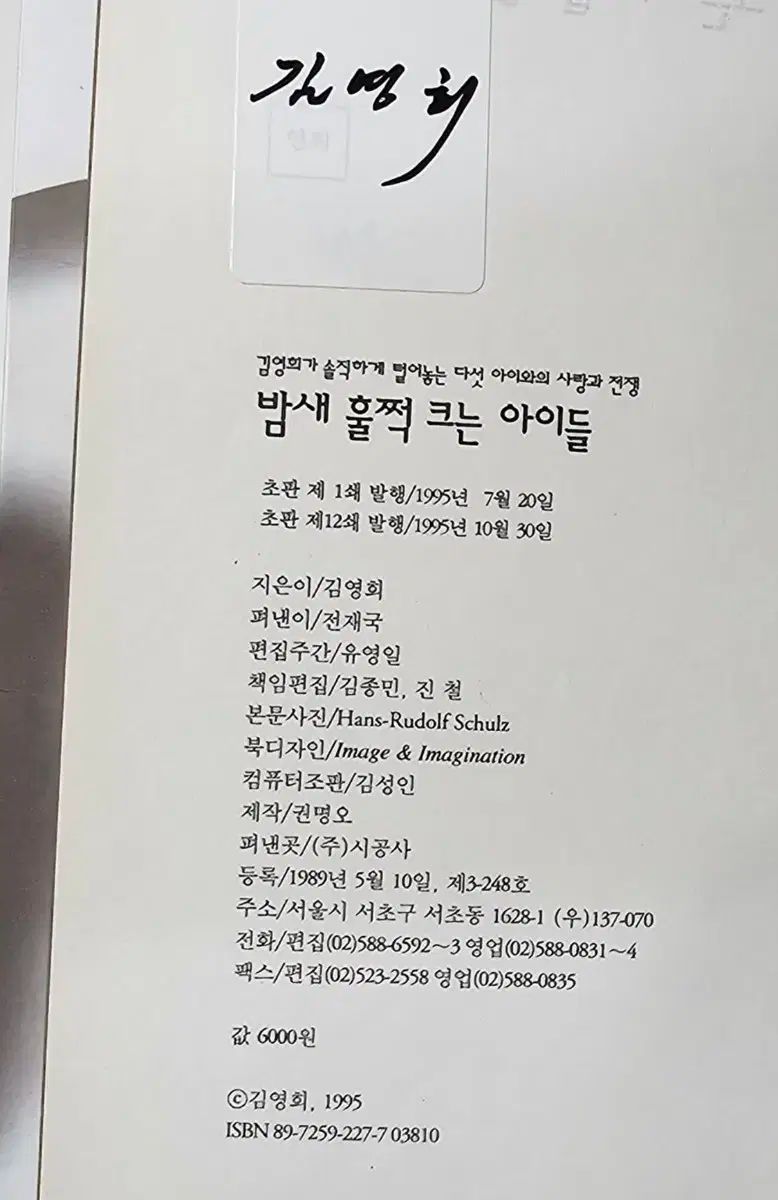 김영희
김영희가 솔직하게 털어놓는 다섯 아이와의 사랑과 전쟁
밤새 훌쩍 크는 아이들
초판 제 1쇄 발행/1995년 7월 20일
초판 제12쇄 발행/1995년 10월 30일
지은이/김영희
펴낸이/전재국
편집주간/유영일
책임편집/김종민, 진 철
본문사진/Hans-Rudolf Schulz
북디자인/Image & Imagination
컴퓨터조판/김성인
제작/권명오
펴낸곳/(주)시공사
등록/1989년 5월 10일, 제3-248호
주소/서울시 서초구 서초동 1628-1 (우)137-070
전화/편집(02)588-6592~3 영업(02)588-0831~4
팩스/편집(02)523-2558 영업(02)588-0835
값 6000원
ⓒ김영희, 1995
ISBN 89-7259-227-7 03810